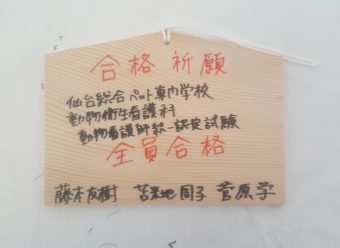 合格祈願
仙台総合ペット専門学校
動物衛生看護科
動物看護師統一認定試験
全員合格
藤本友樹 苫米地周子 菅原学